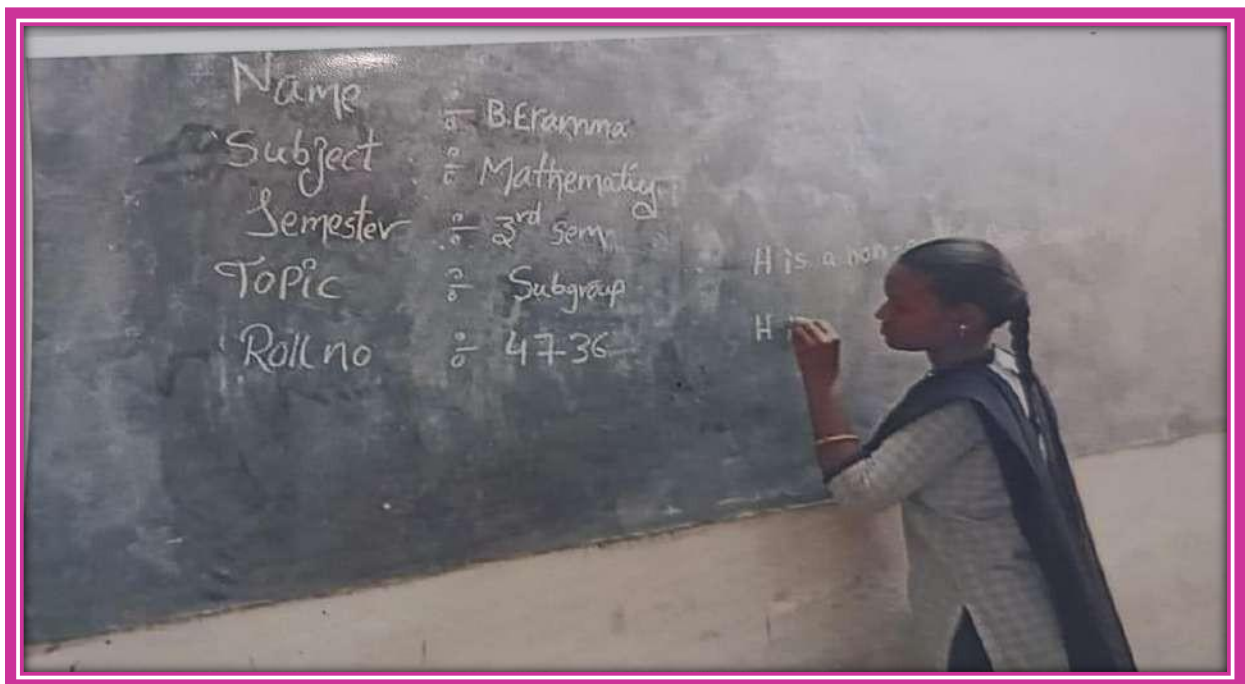 Name :- B.Eramma
Subject :- Mathematics
Semester :- 3rd sem
Topic :- Subgroup
Roll no :- 4736
H is a non-
H